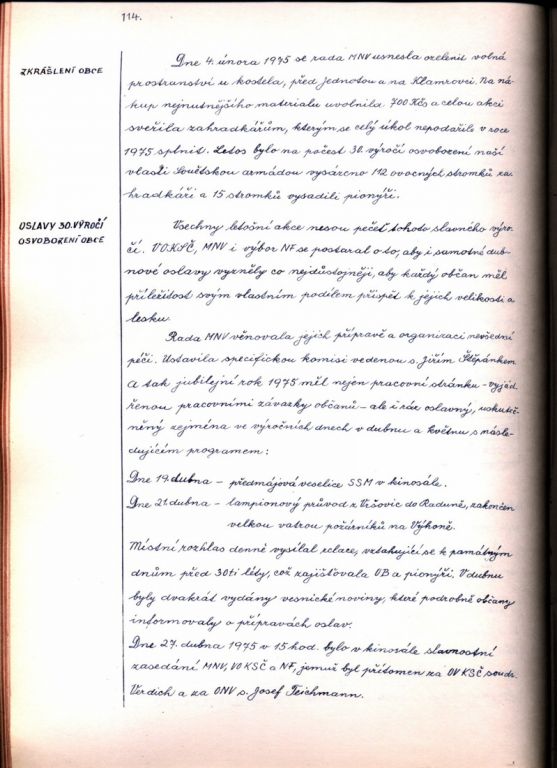 114.
ZKRÁŠLENÍ OBCE
Dne 4. února 1975 se rada MNV usnesla ozelenit volná
prostranství u kostela, před Jednotou a na Klamrovci. Na ná-
kup nejnutnějšího materialu uvolnila 700 Kčs a celou akci
svěřila zahradkářům, kterým se celý úkol nepodařilo v roce
1975 splnit. Letos bylo na počest 30. výročí osvobození naší
vlasti Sovětskou armádou vysázeno 112 ovocných stromků za-
hradkáři a 15 stromků vysadili pionýři.
OSLAVY 30. VÝROČÍ
OSVOBOZENÍ OBCE
Všechny letošní akce nesou pečeť tohoto slavného výro-
čí. VO KSČ, MNV i výbor NF se postaral o to, aby i samotné dub-
nové oslavy vyzněly co nejdůstojněji, aby každý občan měl
příležitost svým vlastním podílem přispět k jejich velikosti a
lesku.
Rada MNV věnovala jejich přípravě a organizaci nevšední
péči. Ustavila specifickou komisi vedenou s. Jiřím Štěpánkem
A tak jubilejní rok 1975 měl nejen pracovní stránku - vyjád-
řenou pracovními závazky občanů - ale i ráz oslavný, uskuteč-
něný zejména ve výročních dnech v dubnu a květnu s násle-
dujícím programem:
Dne 19. dubna - předmájová veselice SSM v kinosále.
Dne 21. dubna - lampionový průvod z Vršovic do Raduně, zakončen
velkou vatrou požárníků na Výhoně.
Místní rozhlas denně vysílal relace, vztahující se k památným
dnům před 30ti léty, což zajišťovala OB a pionýři. V dubnu
byly dvakrát vydány vesnické noviny, které podrobně občany
informovaly o přípravách oslav.
Dne 27. dubna 1975 v 15 hod. bylo v kinosále slavnostní
zasedání MNV, VO KSČ a NF, jemuž byl přítomen za OV KSČ soudr.
Verdich a za ONV s. Josef Teichmann.